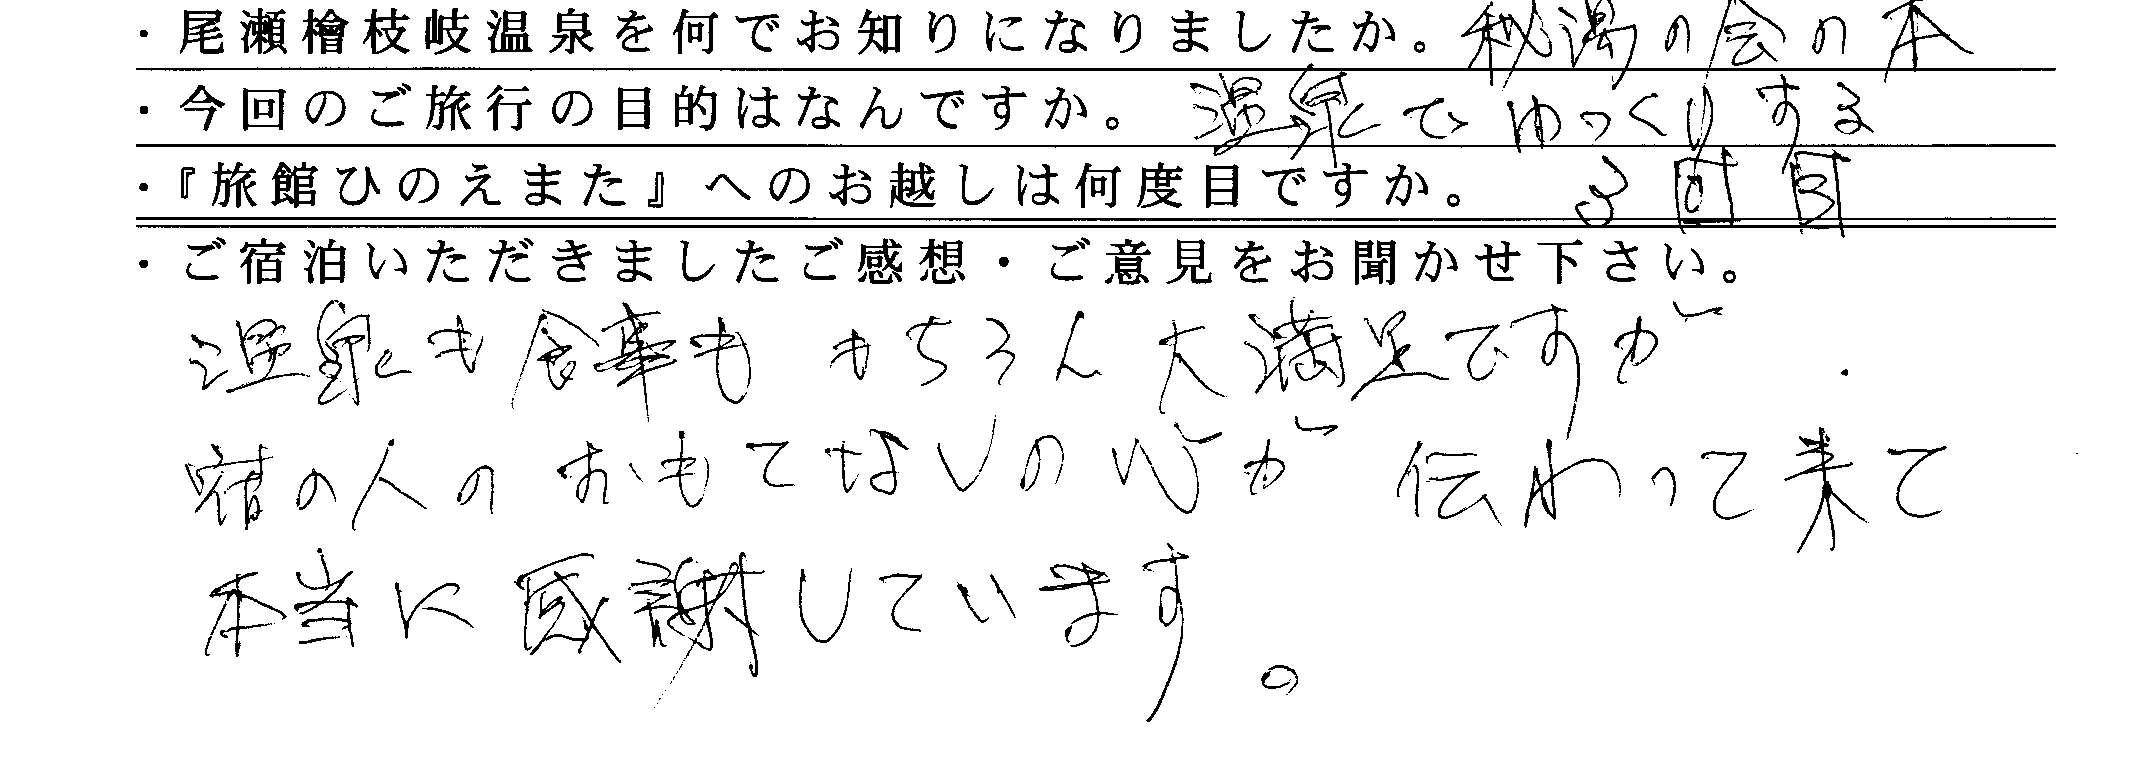 ・尾瀬檜枝岐温泉を何でお知りになりましたか。秘湯の会の本
・今回のご旅行の目的はなんですか。温泉でゆっくりする
・『旅館ひのえまた』へのお越しは何度目ですか。 3回目
・ご宿泊いただきましたご感想・ご意見をお聞かせ下さい。
温泉も食事ももちろん大満足ですが、
宿の人のおもてなしの心が伝わって来て
本当に感謝しています。